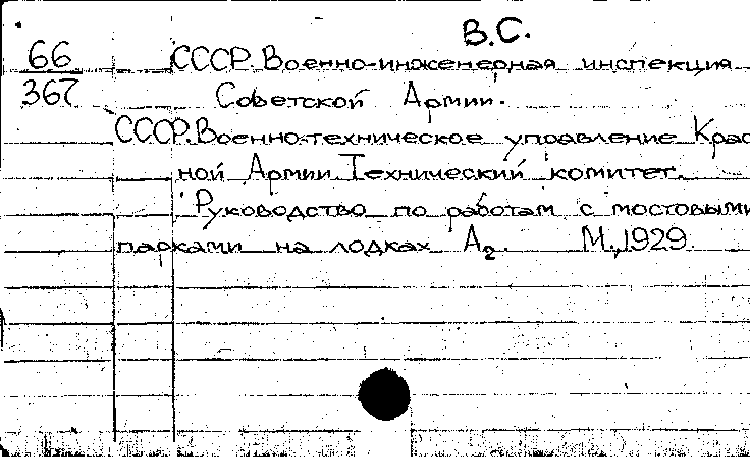 В.С.
66 СССР. Военно-инженерная инспекция
367 Советской Армии.
СССР. Военно-техническое управление Крас
ной Армии. Технический комитет.
Руководство по работам с мостовыми
парками на лодках А₂. М., 1929.